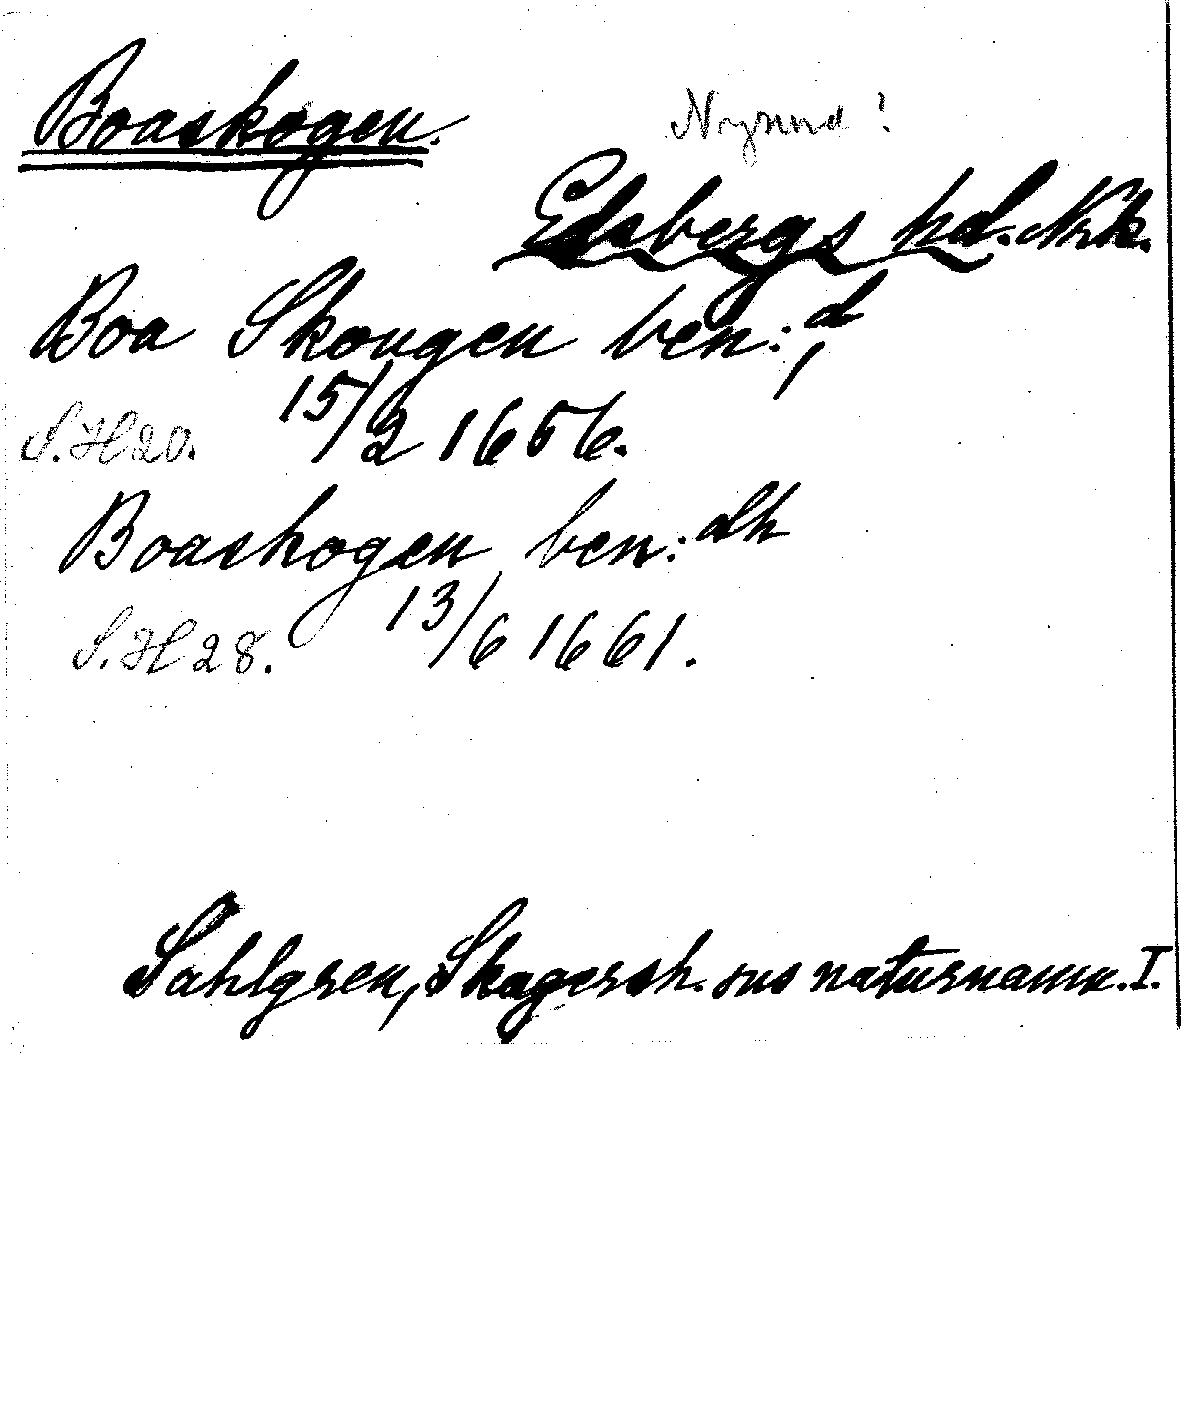 Boaskogen.
Nysund?
Edsbergs hd. Nrk.
Boa Skougen ben:d,
S.H 20. 15/2 1656.
Boaskogen ben:dh
S.H 28. 13/6 1661.
Sahlgren, Skagersh. sns naturnamn. I.